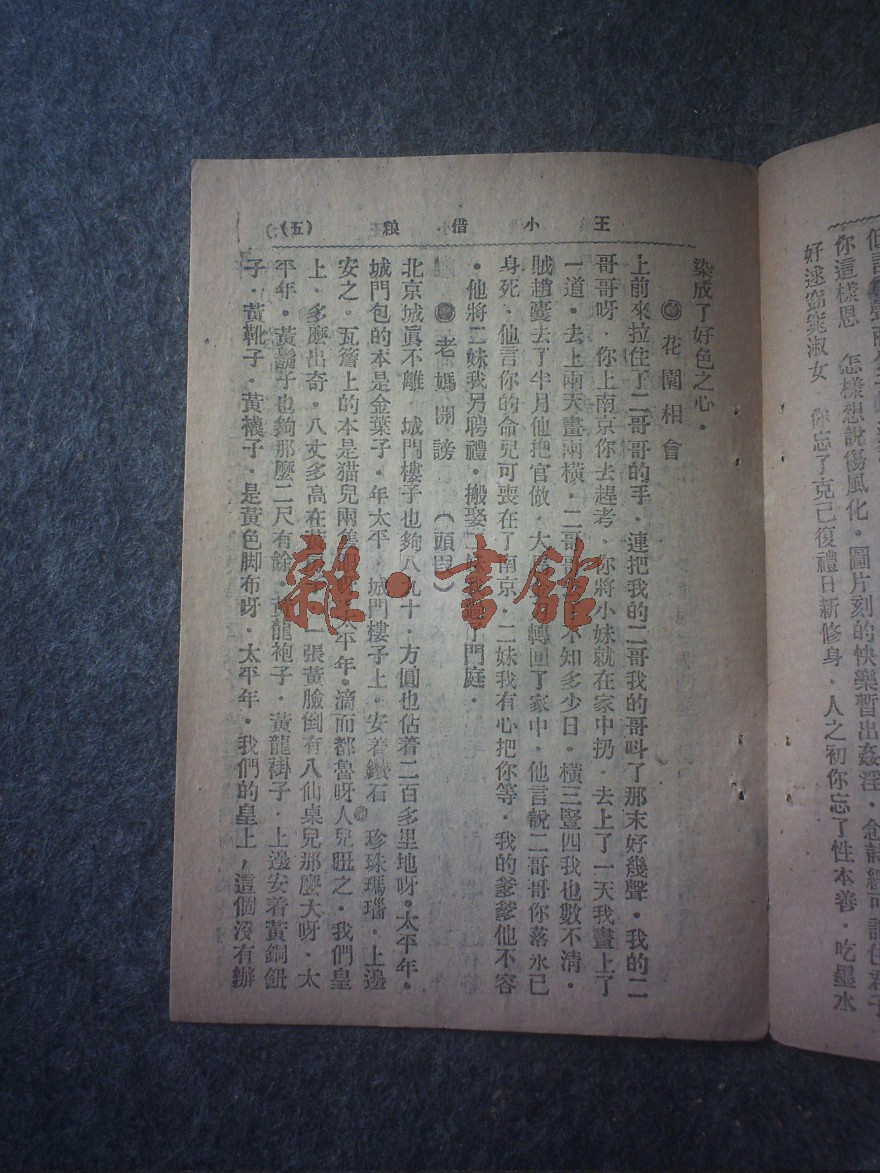 好逑窈窕淑女 你忘了克己復禮日新修身．人之初你忘了性本善．吃墨水
你這樣思 怎樣想說傷風化．圖片刻的快樂暫出姦淫．念詩經可
王小借粮 (五)
染成了好色之心．
花園相會
上前來拉住了二哥哥的手．連把我的二哥我的哥呌了那末好幾聲．我的二
哥哥呀．你上南京你去趕考．你將小妹就在家中扔．去上了一天我畫上了
一道．去上兩天畫兩橫．二哥 不知多少日．橫三豎四我也數不清．
賊趙囊去了半月他把官做． 轉回了家中．他言說二哥哥你落水已
身死．他言你的命兒可喪在了南京．二妹我有心把你等．我的爹爹他不容
．他將二妹我另聘禮．搬娶 門庭．
老媽開謗 (頭
北京城真不離 城門樓子也夠八九十．方圓也佔着二百多里地呀．太平年．
城門包的本是金葉子．年太平．城門樓子上．安着鑽石 珍珠瑪瑙．上邊
安之．瓦簷上的本是猫兒兩隻 太平年．滴而都魯呀人兒旺之．我們皇
上．多麼出奇．八丈多高在 一張黃臉倒有八仙桌兒那麼大呀．太
平年．黃鬍子也夠那麼二尺有餘．黃龍袍子．黃龍褂子．上邊安着黃銅鈕
子．黃靴子．黃襪子．是黃色脚布呀．太平年．我們的皇上，這個沒有辦
雜·書舘